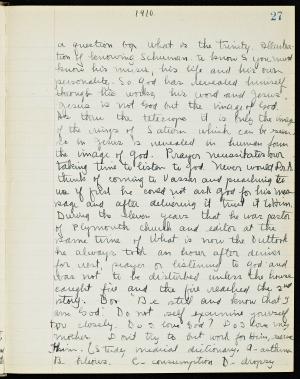 1910
27
a question box what is the trinity. Illustra-
tion of knowing Schuman. to know S. you must
know his music, his life and his own
personality. So God has revealed himself
through his works, his word and Jesus.
Jesus is not God but the image of God.
As thru the telescope it is only the image
of the rings of Saturn which can be seen
so in Jesus is revealed in human form
the image of God. Prayer necessitates our
taking time to listen to God. Never would Dr. A
think of coming to Vassar and preaching to
us if first he could not ask God for his mes-
sage and after delivering it trust it to Him.
During the eleven years that he was pastor
of Plymouth church and editor at the
same time of what is now the Outlook
he always took an hour after dinner
for rest, prayer or listening to God and
was not to be disturbed unless the house
caught fire and the fire reached the 2nd
story. Be still and know that I
am God. Do not self examine yourself
too closely. Do I love God? Do I love my
mother. Don't try to but work for him, serve
Him. (Study medical dictionary, A - asthma
B. bilious. C - consumption D - dropsy